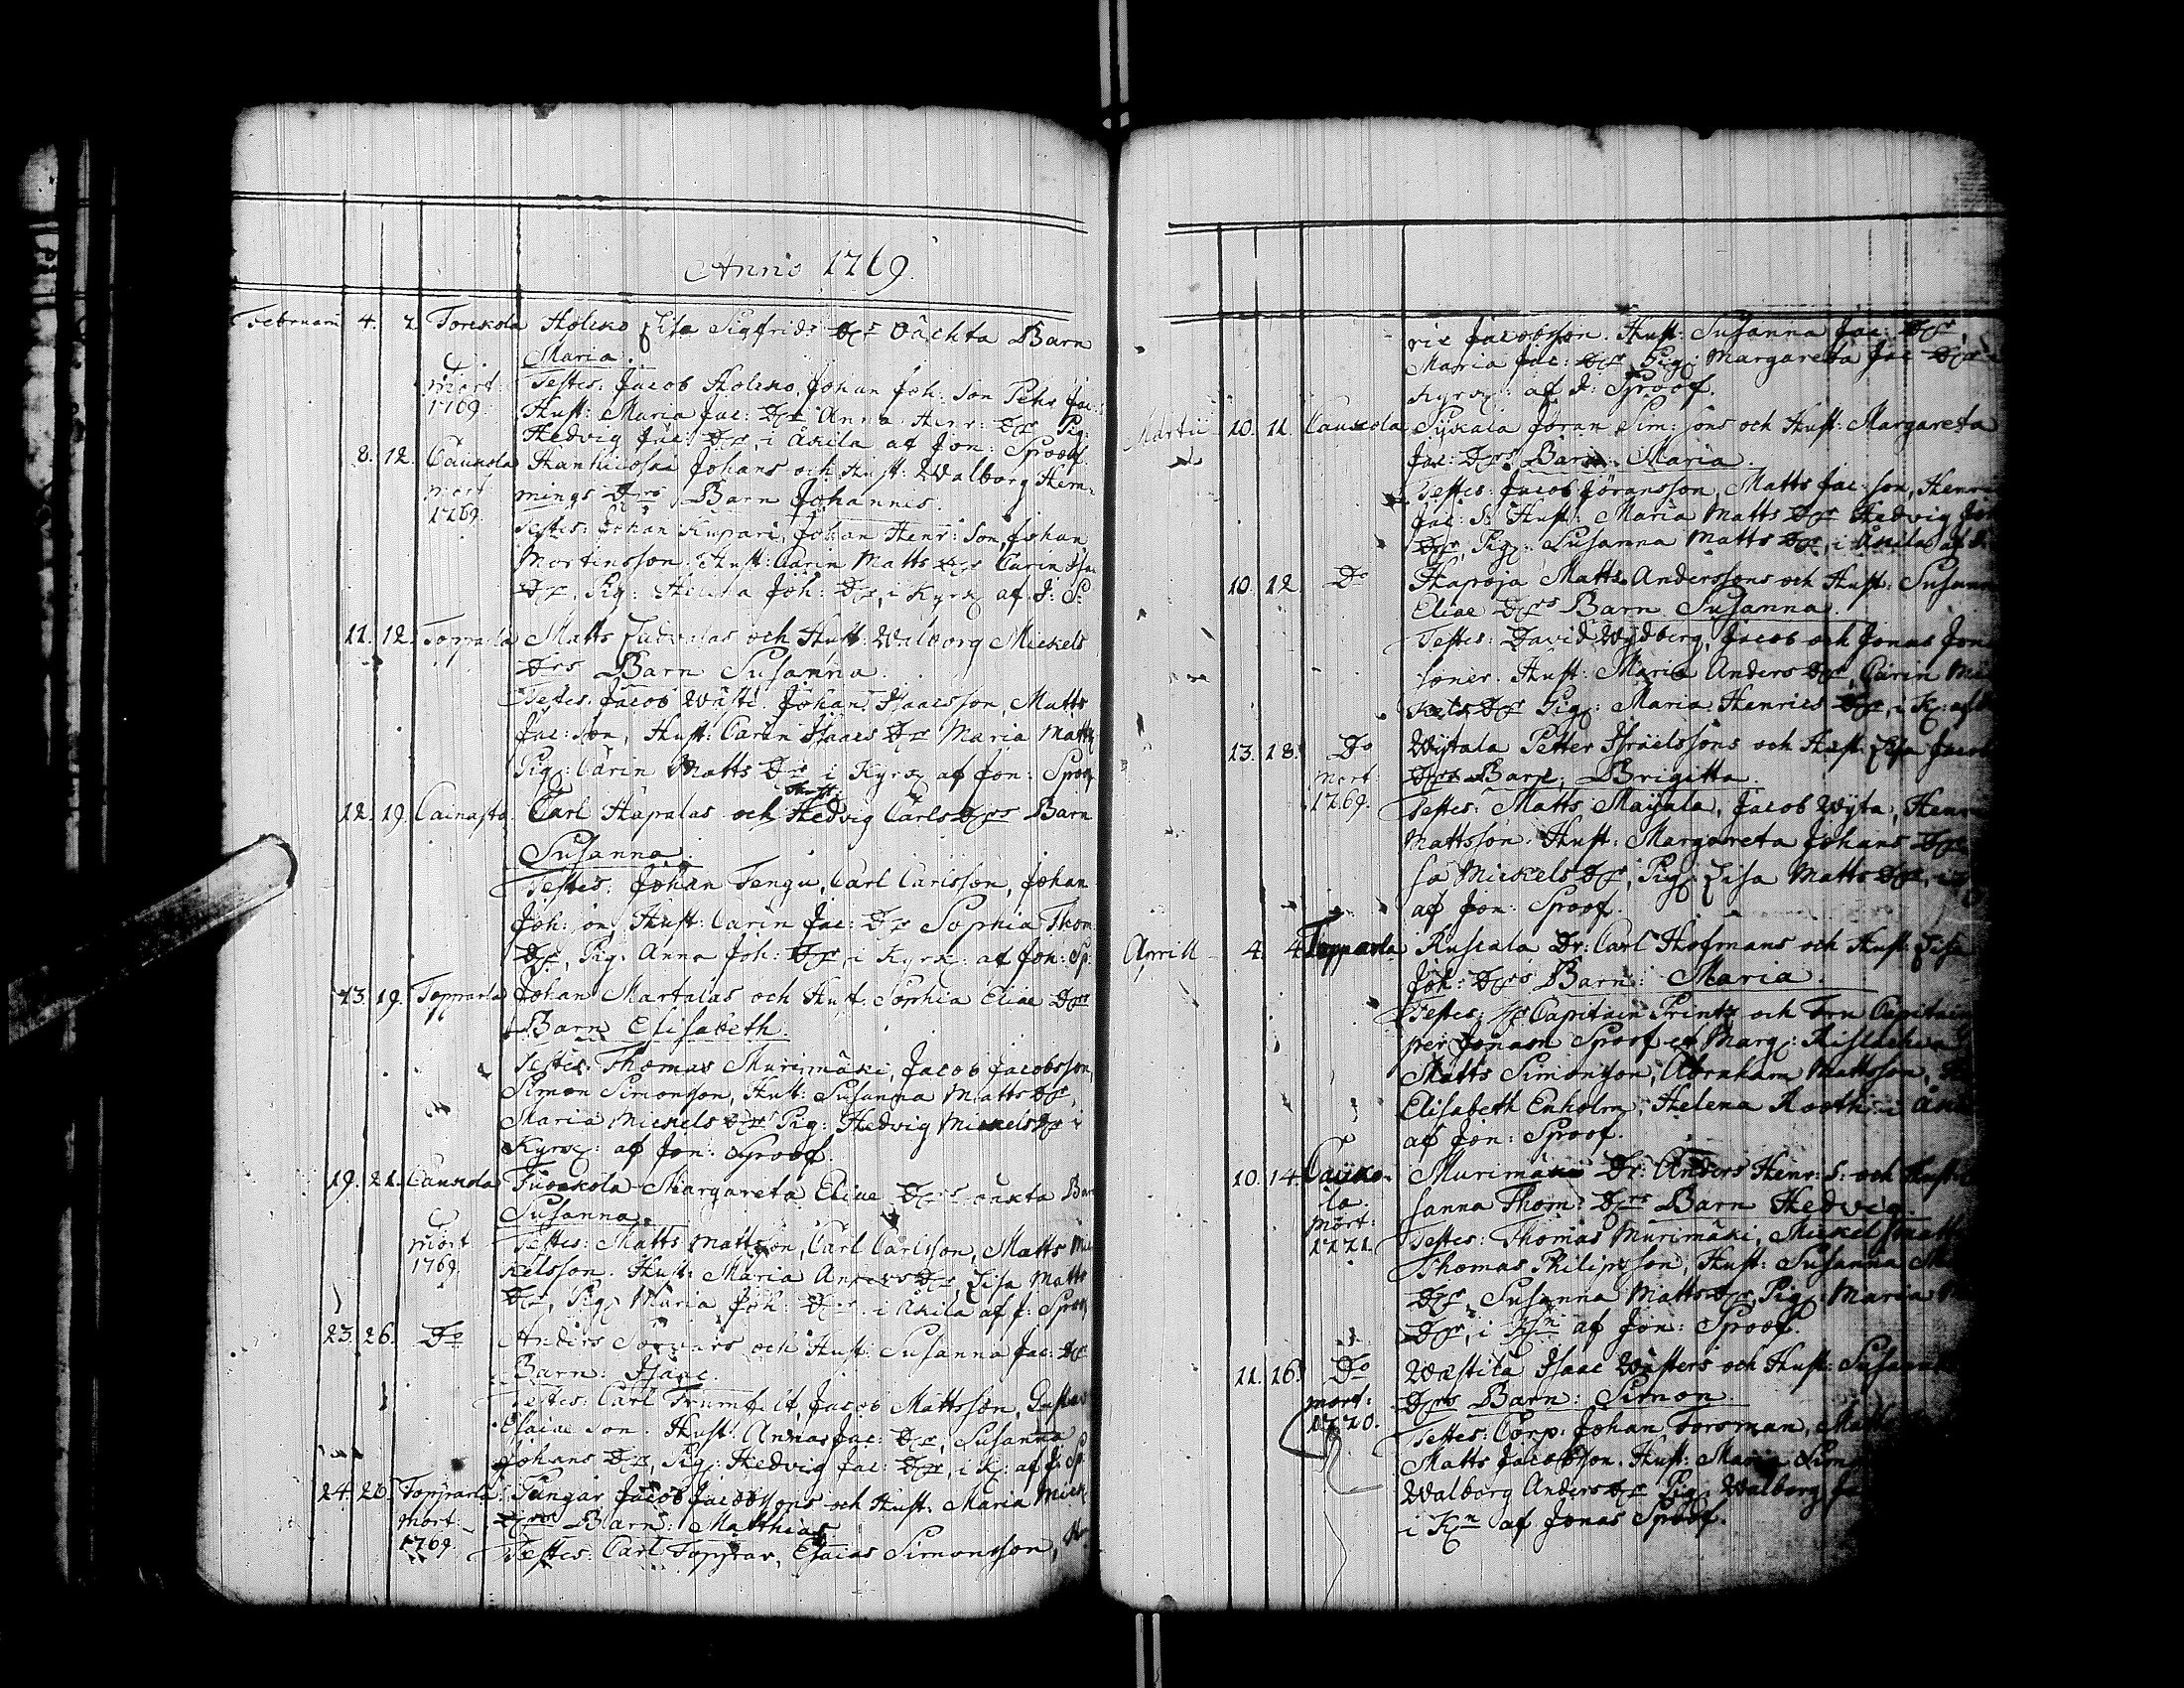 Anno 1769.
Februarii 4. 7. Torekola Holcko Lisa Sigfrids Dr oächta Barn
Maria.
mort: 1769. Testes: Jacob Holcko, Johan Joh: Son Pehr Jac:
Hust: Maria Jac: Dr Anna Henr: Dr Pig:
Hedvig Jac: Dr, i Äkila af Jon: Sproof.
8. 12. Cauxola Hanhicoski Johans och Hust: Walborg Hem-
mort 1769. mings Drs Barn Johannes.
Testes: Johan Kupari, Johan Henr: Son, Johan
Mortensson. Hust: Carin Matts Dr Carin Isac
Dr, Pig: Helena Joh: Dr, i Kyrk af J: S:
11. 12. Topparla Matts Judvalas och Hust: Walborg Mickels
Drs Barn Susanna.
Testes: Jacob Wästi. Johan Isaacsson, Matts
Jac: Son, Hust: Carin Isaacs Dr Maria Matts
Pig: Carin Matts Dr i Kyrk af Jon: Sproof
12. 19. Cainasto Carl Hapalas och Hust: Hedvig Carls Drs Barn
Susanna.
Testes: Johan Tengu, Carl Carlsson, Johan
Joh: on, Hust: Carin Jac: Dr Sophia Thom:
Dr, Pig: Anna Joh: Dr, i Kyrk: af Jon: Sp:
13. 19. Topparla Johan Martalas och Hust. Sophia Eliae Drs
Barn Elisabeth.
Testes: Thomas Murimäki, Jacob Jacobsson,
Simon Simonsson, Hust: Susanna Matts Dr,
Maria Mickels Dr Pig: Hedvig Mickels Dr i
Kyrk: af Jon: Sproof.
19. 21. Cauxola Margareta Eliae Drs oäkta Bar
Susanna.
mort 1769. Testes: Matts Mattsson, Carl Carlsson, Matts Mic
kelsson. Hust: Maria Anders Dr, Lisa Matts
Dr, Pig: Maria Joh: Dr i Äkila af J: Sproof
23. 26. Do Anders Sorvars och Hust: Susanna Jac: Dr
Barn: Isaac.
Testes: Carl Trumfelt, Jacob Mattsson, Gustav
Esaiae Son. Hust: Anna Jac: Dr, Susanna
Johans Dr, Pig: Hedvig Jac: Dr, i K: af J: Sp:
24. 26. Topparla Pungar Jacob Jacobssons och Hust: Maria Mick
mort: 1769. Drs Barn: Matthias
Testes: Carl Toppar, Esaias Simonsson,
ric Jacobsson. Hust: Susanna Jac: Dr,
Maria Jac: Dr, Pig: Margareta Jac Dr i
Kyrk: af J: Sproof.
Martii 10. 11. Cauxola Sykala Jöran Sim: sons och Hust: Margareta
Jac: Drs Barn. Maria.
Testes: Jacob Jöransson, Matts Jac: son, Henri
Jac: S: Hust: Maria Matts Dr Hedvig
Dr, Pig: Susanna Matts Dr, i Äkila af J:
10. 12. Do Hapoja Matts Anderssons och Hust: Susanna
Eliae Drs Barn Susanna.
Testes: David Wydberg, Jacob och Jonas Jon
söner. Hust: Maria Anders Dr, Carin Mic
kels Dr Pig: Maria Henrics Dr, i K: af
13. 18. Do Wytala Petter Israelssons och Hust: Lisa Jacob
mort: 1769. Drs Barn: Brigitta.
Testes: Matts Mayala, Jacob Wyta, Henr
Mattsson. Hust: Margareta Johans Dr
sa Mickels Dr, Pig: Lisa Matts Dr, i
af Jon: Sproof.
Aprill 4. 4. Topparla Ruscala Dr: Carl Hofmans och Hust: Lisa
Joh: Drs Barn: Maria.
Testes: Hr Capitain Printz och Fru Capitain
per Jonam Sproof et Marg:
Matts Simonsson, Abraham Mattsson,
Elisabeth Enholm, Helena Rooth i Äki
af Jon: Sproof.
10. 14. Caijko- Murimäki Dr: Anders Henr: S: och Hust:
la. mort: 1771. sanna Thom: Drs Barn Hedvig.
Testes: Thomas Murimäki, Mickel Matts
Thomas Philipsson, Hust: Susanna
Dr, Susanna Matts Dr, Pig: Maria
Dr, i Kn af Jon: Sproof.
11. 16. Do Wästilä Isaac Wästers och Hust: Susanna
mort: 1770. Drs Barn: Simon
Testes: Corp: Johan Forsman, Matts
Matts Jacobsson. Hust: Maria Simo
Walborg Anders Dr Pig: Walborg
i Kn af Jonas Sproof.